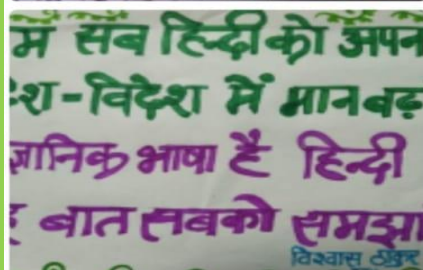 म सब हिन्दी को अपन
श-विदेश में मान बढ़
ज्ञानिक भाषा है हिन्दी
बात सबको समझा
विश्वास ठाकुर